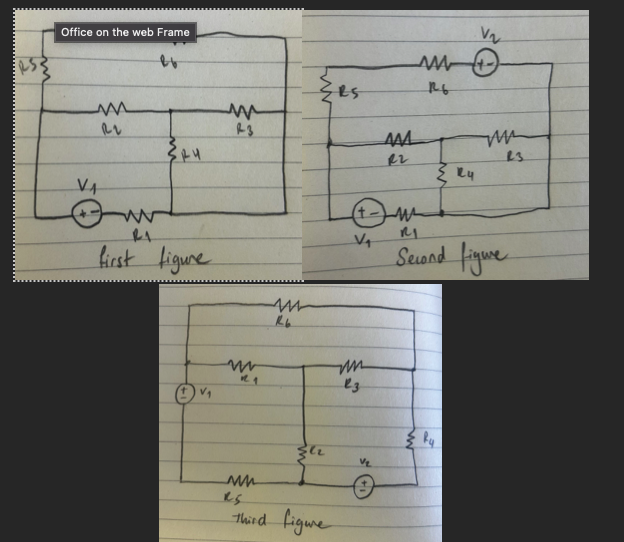 Office on the web Frame
R5
R6
R2
R3
R4
V1
R1
first figure
V2
R5
R6
R2
R3
R4
V1
R1
Second figure
R6
R1
R3
V1
R2
R4
V2
R5
third figure